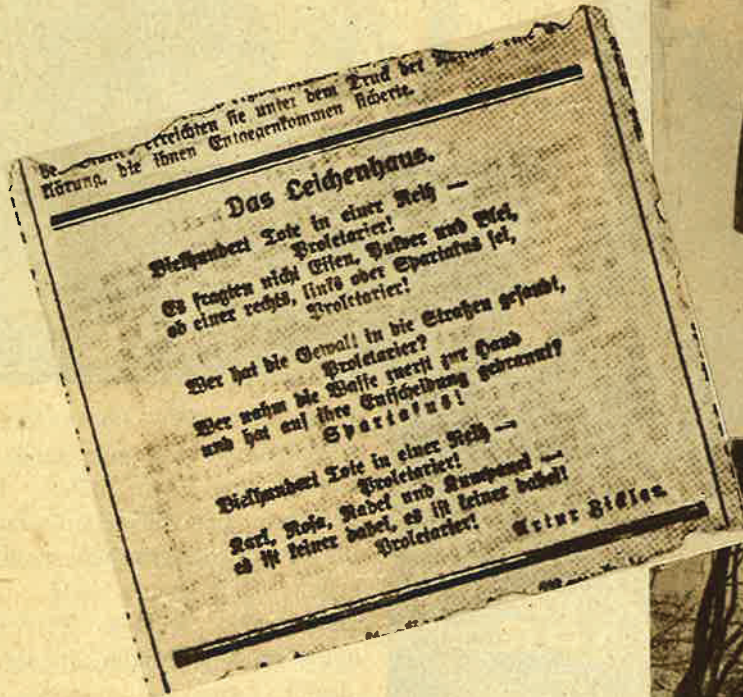 erreichten sie unter dem Druck der
klärung, die ihnen Entgegenkommen sicherte.
Das Leichenhaus.
Vielhundert Tote in einer Reih —
Proletarier!
Es fragten nicht Eisen, Pulver und Blei,
ob einer rechts, links oder Spartakus sei,
Proletarier!
Wer hat die Gewalt in die Straßen gesandt,
Proletarier?
Wer nahm die Waffe zuerst zur Hand
und hat auf ihre Entscheidung gebrannt?
Spartakus!
Vielhundert Tote in einer Reih —
Proletarier!
Karl, Rosa, Radek und Kumpanei —
es ist keiner dabei, es ist keiner dabei!
Proletarier!
Artur Zickler.